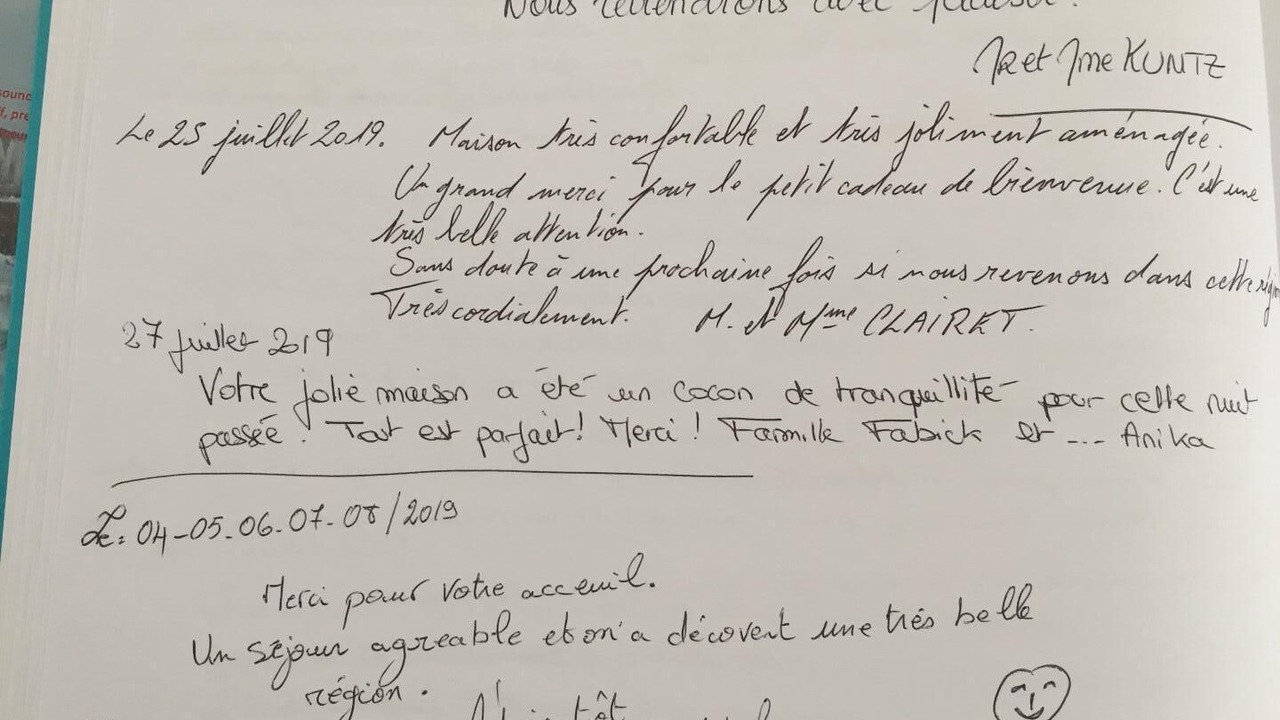 Nous reviendrons avec plaisir.
Mr et Mme KUNTZ
Le 25 juillet 2019. Maison très confortable et très joliment aménagée.
Un grand merci pour le petit cadeau de bienvenue. C'est une
très belle attention.
Sans doute à une prochaine fois si nous revenons dans cette
Très cordialement. M. et Mme CLAIRET.
27 juillet 2019
Votre jolie maison a été un cocon de tranquillité pour cette nuit
passée! Tout est parfait! Merci! Famille Fabick et ... Anika
Le: 04-05.06.07-08/2019
Merci pour votre acceuil.
Un séjour agreable et on'a décovert une trés belle
région.